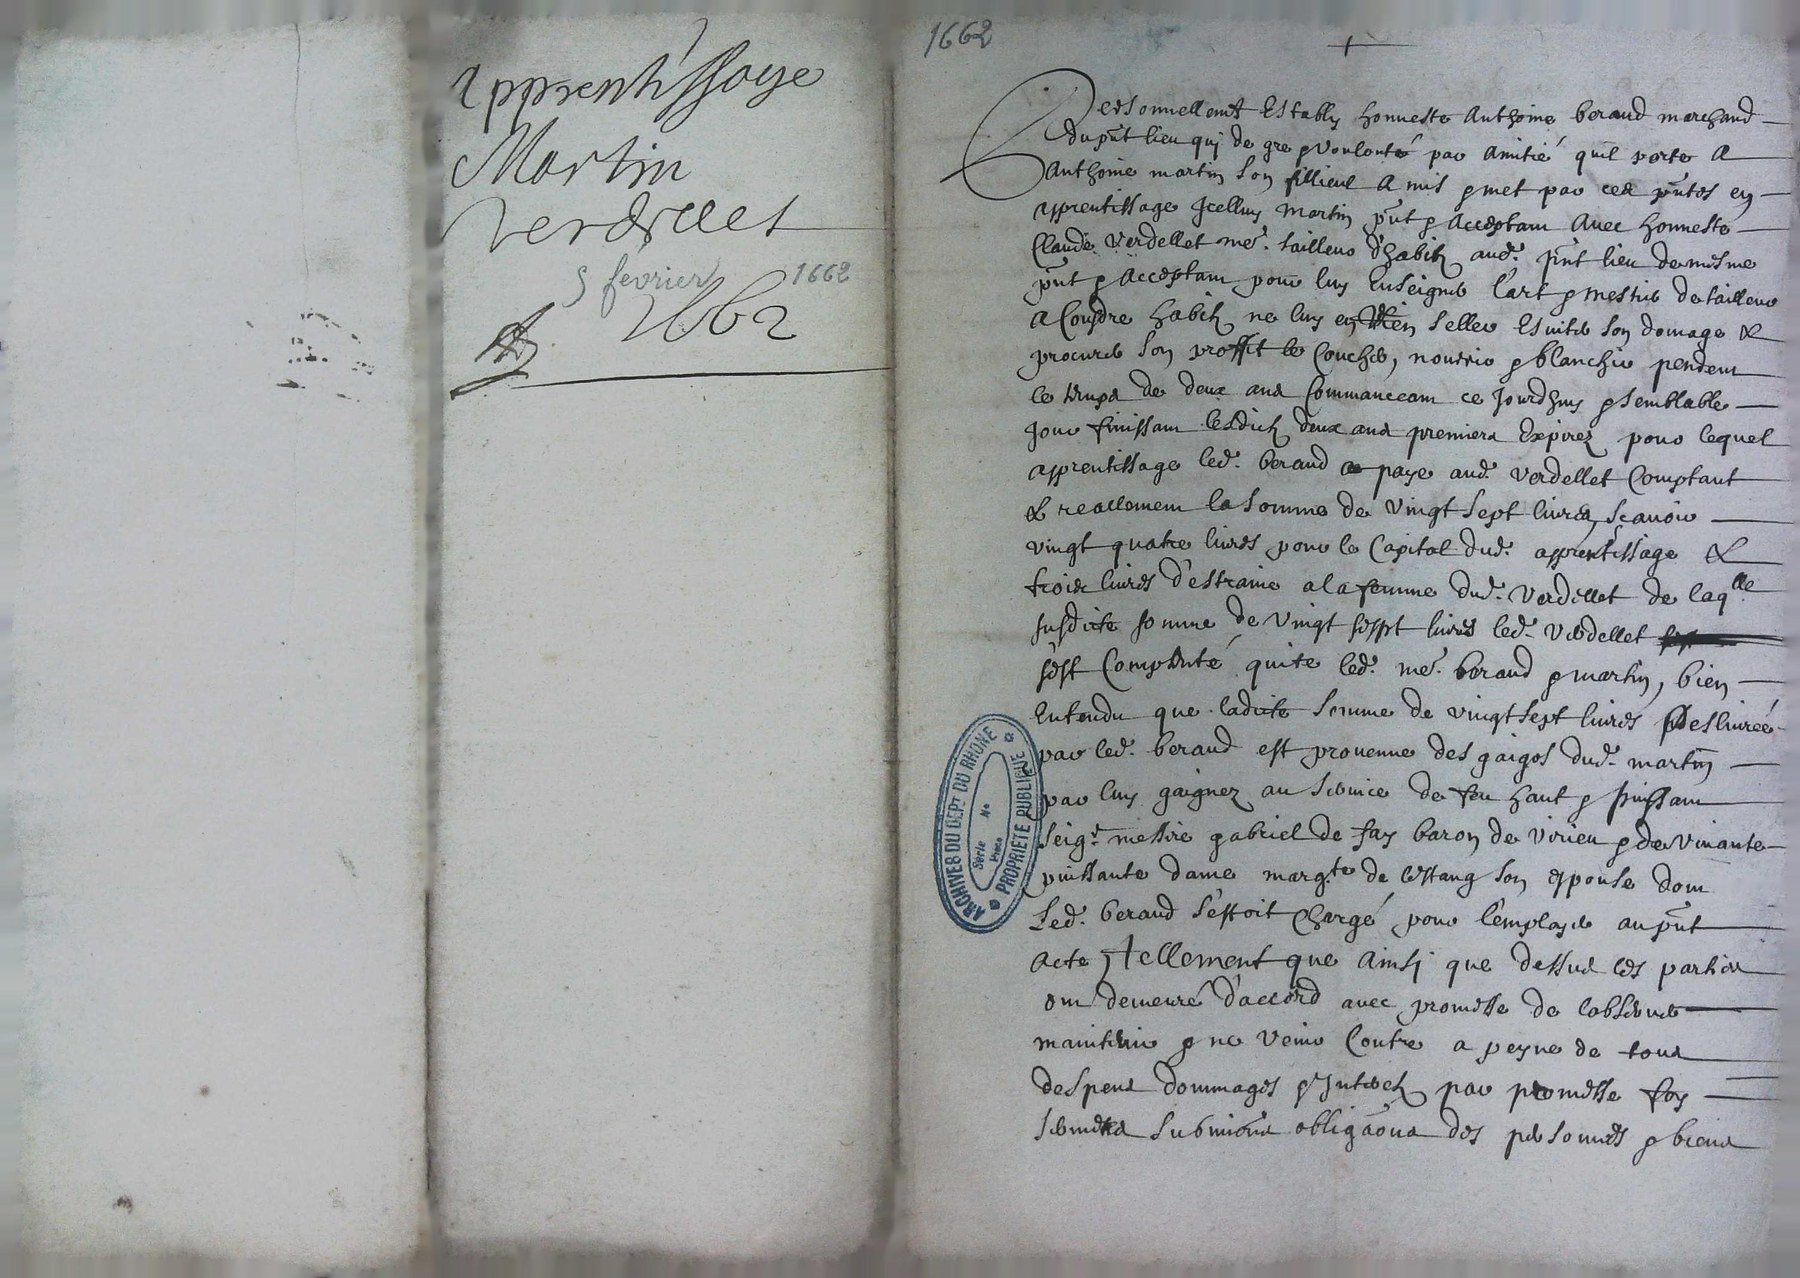 Apprentissage
Martin
Verdellet
5 février 1662
1662
1662
Personnellemt Estably honneste Anthoine beraud marchand
du pnt lieu quj de gre & voulonté par amitié quil porte A
Anthoine martin son fillieul A mis & met par ces pntes en
apprentissage Jcelluy Martin pnt & Acceptam Avec honneste
Claude Verdellet me. tailleur d'habitz aud. pnt lieu de mesme
pnt & Acceptam pour luy Enseigner l'art & mestier de tailleur
A Coudre habitz ne luy en Rien seller Esviter son domage &
procurer son proffit le Coucher, nourrir & blanchir pendem
le temps de deux ans Commanceam ce Jourdhuy & semblable
Jour finissam lesdictz deux ans premiers Expirez pour lequel
apprentissage led. beraud a paye aud. Verdellet Comptant
& reallemem la somme de Vingt sept livres, scavoir
vingt quatre livres pour le Capital dud. apprentissage &
trois livres d'estraine a la femme dud. Verdellet de laqlle
susdicte somme de Vingt sept livres led. Verdellet
s'est Comptenté quite led. me. beraud & martin, bien
Entendu que ladicte somme de vingt sept livres deslivrée
par led. beraud est provenue des gaiges dud. martin
par luy gaignez au service de feu haut & puissam
seigr. messire gabriel de fay baron de virieu & de
puissante dame margte de lestang son Espouse dom
led. beraud s'estoit chargé pour l'employer au pnt
acte, tellement que Ainsj que dessus les parties
om demeuré d'accord avec promesse de l'observer
maintenir & ne Venir Contre a peyne de tous
despens dommages & Jnterestz par promesse foy
serments submions obligaons des personnes & biens
ARCHIVES DU DEPT. DU RHONE
PROPRIETE PUBLIQUE
Série No